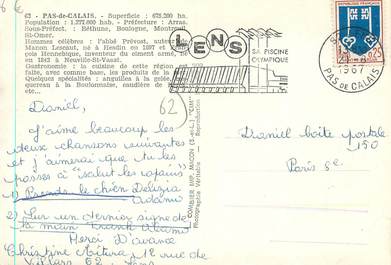 62 - PAS-de-CALAIS. - Superficie : 675.200 ha.
Population : 1.277.000 hab. - Préfecture : Arras.
Sous-Préfect. : Béthune, Boulogne, Montreuil
St-Omer.
Hommes célèbres : l'abbé Prévost, auteur
Manon Lescaut, né à Hesdin en 1697 et
çois Hennebique, inventeur du ciment armé,
en 1842 à Neuville-St-Vaast.
Gastronomie : la cuisine de cette région est
faite, avec comme base, les produits de la
Quelques spécialités : anguilles à la gelée,
quereau à la Boulonnaise, caudière de
etc...
LENS
SA PISCINE
OLYMPIQUE
1967
PAS DE CALAIS
0,25
62
COMBIER IMP. MACON (S.-et-L.) "CIM"
Photographie Véritable - Reproduction
Daniel,
j'aime beaucoup les
deux chansons suivantes
et j'aimerai que tu les
passes à "salut les copains"
1) Prends le chien Delizia
Adamo
2) Sur un dernier signe de
la main Frank Alamo
Merci D'avance
Christine
12 rue de
62
Daniel boîte postale
150
Paris 8e.